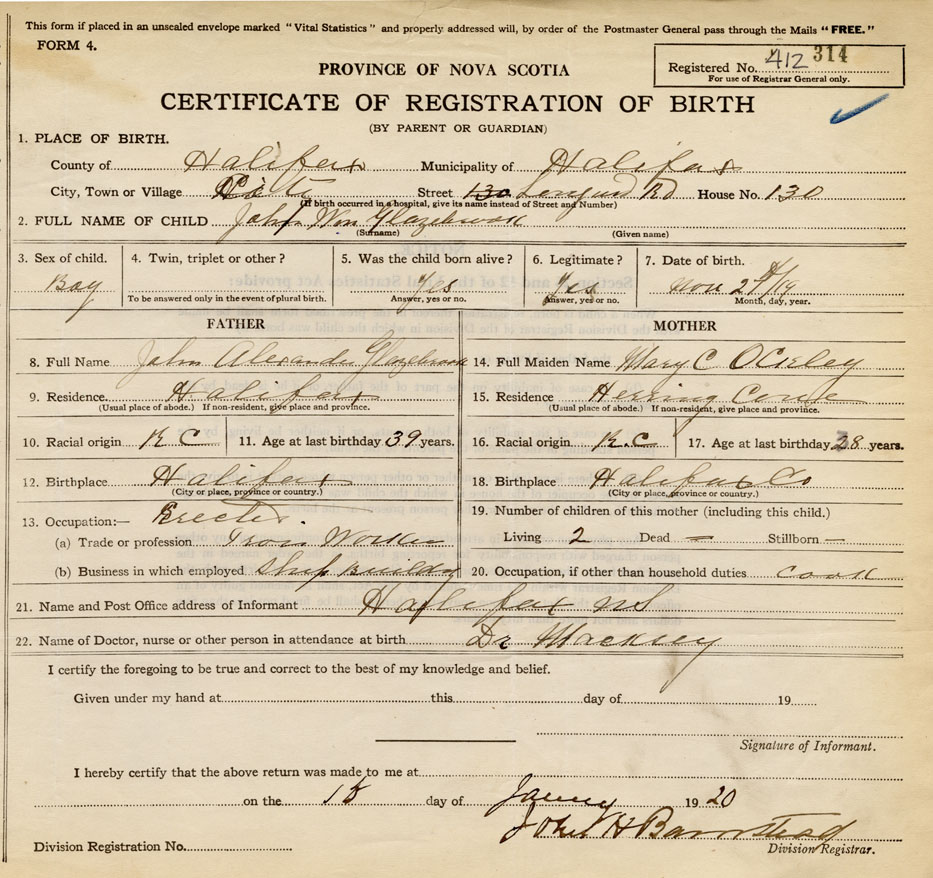 This form if placed in an unsealed envelope marked "Vital Statistics" and properly addressed will, by order of the Postmaster General pass through the Mails "FREE."
FORM 4.
Registered No. 412 314
For use of Registrar General only.
PROVINCE OF NOVA SCOTIA
CERTIFICATE OF REGISTRATION OF BIRTH
(BY PARENT OR GUARDIAN)
1. PLACE OF BIRTH.
County of Halifax Municipality of Halifax
City, Town or Village Street 130 Longard Rd House No. 130
(If birth occurred in a hospital, give its name instead of Street and Number)
2. FULL NAME OF CHILD John Wm Glazebrook
(Surname) (Given name)
3. Sex of child. 4. Twin, triplet or other? 5. Was the child born alive? 6. Legitimate? 7. Date of birth.
Boy Yes Yes Nov
To be answered only in the event of plural birth. Answer, yes or no. Answer, yes or no. Month, day, year.
FATHER MOTHER
8. Full Name John Alexander Glazebrook 14. Full Maiden Name Mary C
9. Residence. Halifax 15. Residence Herring Cove
(Usual place of abode.) If non-resident, give place and province. (Usual place of abode.) If non-resident, give place and province.
10. Racial origin R C 11. Age at last birthday 39 years. 16. Racial origin R.C 17. Age at last birthday 38 years.
12. Birthplace Halifax 18. Birthplace Halifax Co
(City or place, province or country.) (City or place, province or country.)
13. Occupation:— Erector 19. Number of children of this mother (including this child.)
(a) Trade or profession Iron Worker Living 2 Dead — Stillborn —
(b) Business in which employed Ship building 20. Occupation, if other than household duties cook
21. Name and Post Office address of Informant Halifax NS
22. Name of Doctor, nurse or other person in attendance at birth Dr
I certify the foregoing to be true and correct to the best of my knowledge and belief.
Given under my hand at this day of 19
Signature of Informant.
I hereby certify that the above return was made to me at
on the 15 day of January 1920
John H Barnstead
Division Registration No. Division Registrar.